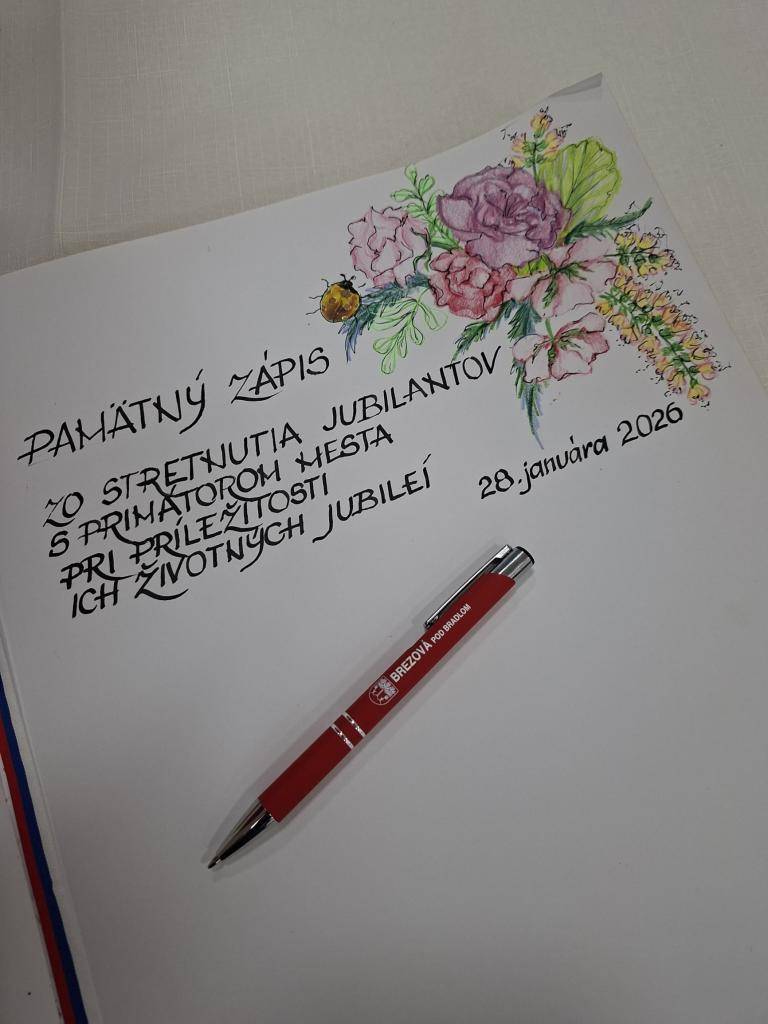 PAMÄTNÝ ZÁPIS
ZO STRETNUTIA JUBILANTOV
S PRIMÁTOROM MESTA
PRI PRÍLEŽITOSTI
ICH ŽIVOTNÝCH JUBILEÍ
28. januára 2026
BREZOVÁ POD BRADLOM